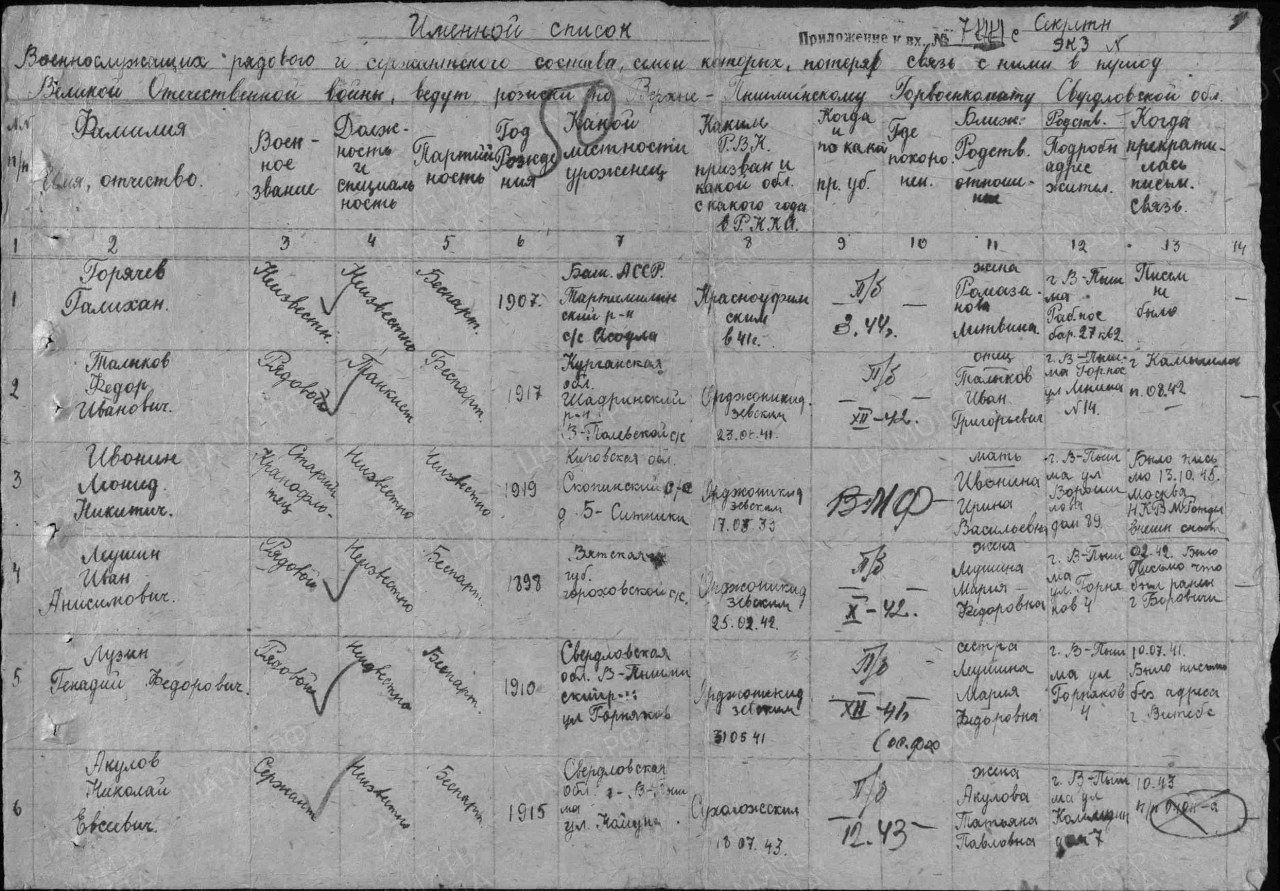 Именной список
Приложение к вх. №
с
Секретн
Военнослужащих рядового и сержантского состава, семьи которых, потеряв связь с ними в период
Великой Отечественной войны, ведут розыски по Верхне-Пышминскому Горвоенкомату Свердловской обл.
№№ п/п
Фамилия Имя, отчество.
Воен-ное звание
Долж-ность и специаль ность
Партий ность
Год Рожде ния
Какой местности уроженец
Каким Р.В.К. призван и какой обл. с какого года в Р.К.К.А.
Когда и по какой пр. уб.
Где похоро-нен.
Ближ. Родств. отноше-ние
Родств. Подробн адрес жител.
Когда прекрати-лась письм. связь.
1 2 3 4 5 6 7 8 9 10 11 12 13 14
1
Горячев
Галихан.
Неизвестн.
Неизвестно
Беспарт.
1907
Баш. АССР.
ский р-н
с/с
Красноуфим
ским
в 41г.
П/б
3.44г.
жена
Рамаза-
нова
г. В-Пыш
ма
бар. 27 кв 2
Писем
не
было
2
Талыков
Федор
Иванович.
Рядовой
Танкист
Беспарт.
1917
Курганская
обл.
Шадринский
р-н
с/с
Орджоникид-
зевским
23.08.41.
П/б
XII-42.
отец
Талыков
Иван
Григорьевич
г. В-Пыш-
ма
ул Ленина
N 14.
г
п. 08.42
3
Ивонин
Леонид
Никитич.
Старший
Краснофло-
тец
Неизвестно
Неизвестно
1919
Кировская обл.
Скопинский с/с
д. 5-Ситники
Орджоникид
зевским
ВМФ
мать
Ивонина
Ирина
Васильевна
г. В-Пыш
ма ул
Вороши
лова
дом 89
Было пись
мо 13.10.45.
Москва
4
Леушин
Иван
Анисимович.
Рядовой
Неизвестно
Беспарт.
1898
Вятская
губ.
Гороховской с/с.
Орджоникид
зевским
25.02.42.
П/б
X-42.
жена
Леушина
Мария
Федоровна
г. В-Пыш
ма
ул. Горня
ков 4
02.42. Было
Письмо что
был ранен
г Боровичи
5
Лузин
Генадий Федорович.
Рядовой
Неизвестно
Беспарт.
1910
Свердловская
обл. В-Пышмин
ский р-н
ул Горняков
Орджоникид
зевским
310541
П/б
XII-41г.
сестра
Леушина
Мария
Федоровна
г. В-Пыш
ма ул
Горняков
4
10.07.41.
Было письмо
без адреса
г. Витебс
6
Акулов
Николай
Евсеевич.
Сержант
Неизвестно
Беспарт.
1915
Свердловская
обл. г-В-Пыш
ма
ул.
Сухоложский
18 07.43.
П/б
12.43
жена
Акулова
Татьяна
Павловна
г. В-Пыш
ма ул
дом 7
10.43